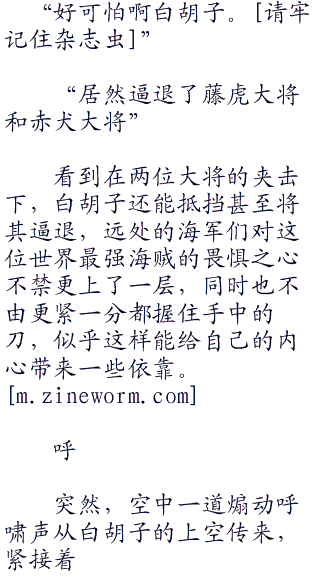 “好可怕啊白胡子。[请牢
记住杂志虫]”
“居然逼退了藤虎大将
和赤犬大将”
看到在两位大将的夹击
下，白胡子还能抵挡甚至将
其逼退，远处的海军们对这
位世界最强海贼的畏惧之心
不禁更上了一层，同时也不
由更紧一分都握住手中的
刀，似乎这样能给自己的内
心带来一些依靠。
[m.zineworm.com]
呼
突然，空中一道煽动呼
啸声从白胡子的上空传来，
紧接着